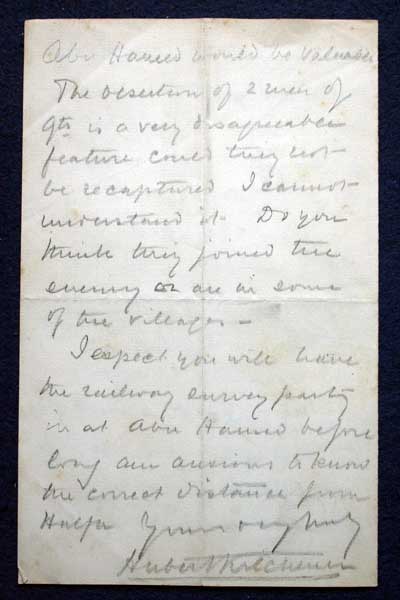 Abu Hamed would be valuable
The desertion of 2 men of
9th is a very disagreeable
feature could they not
be recaptured I cannot
understand it Do you
think they joined the
enemy or are in some
of the villages –
I expect you will have
the railway survey party
in at Abu Hamed before
long am anxious to know
the correct distance from
Halfa Yours very truly
Herbert Kitchener